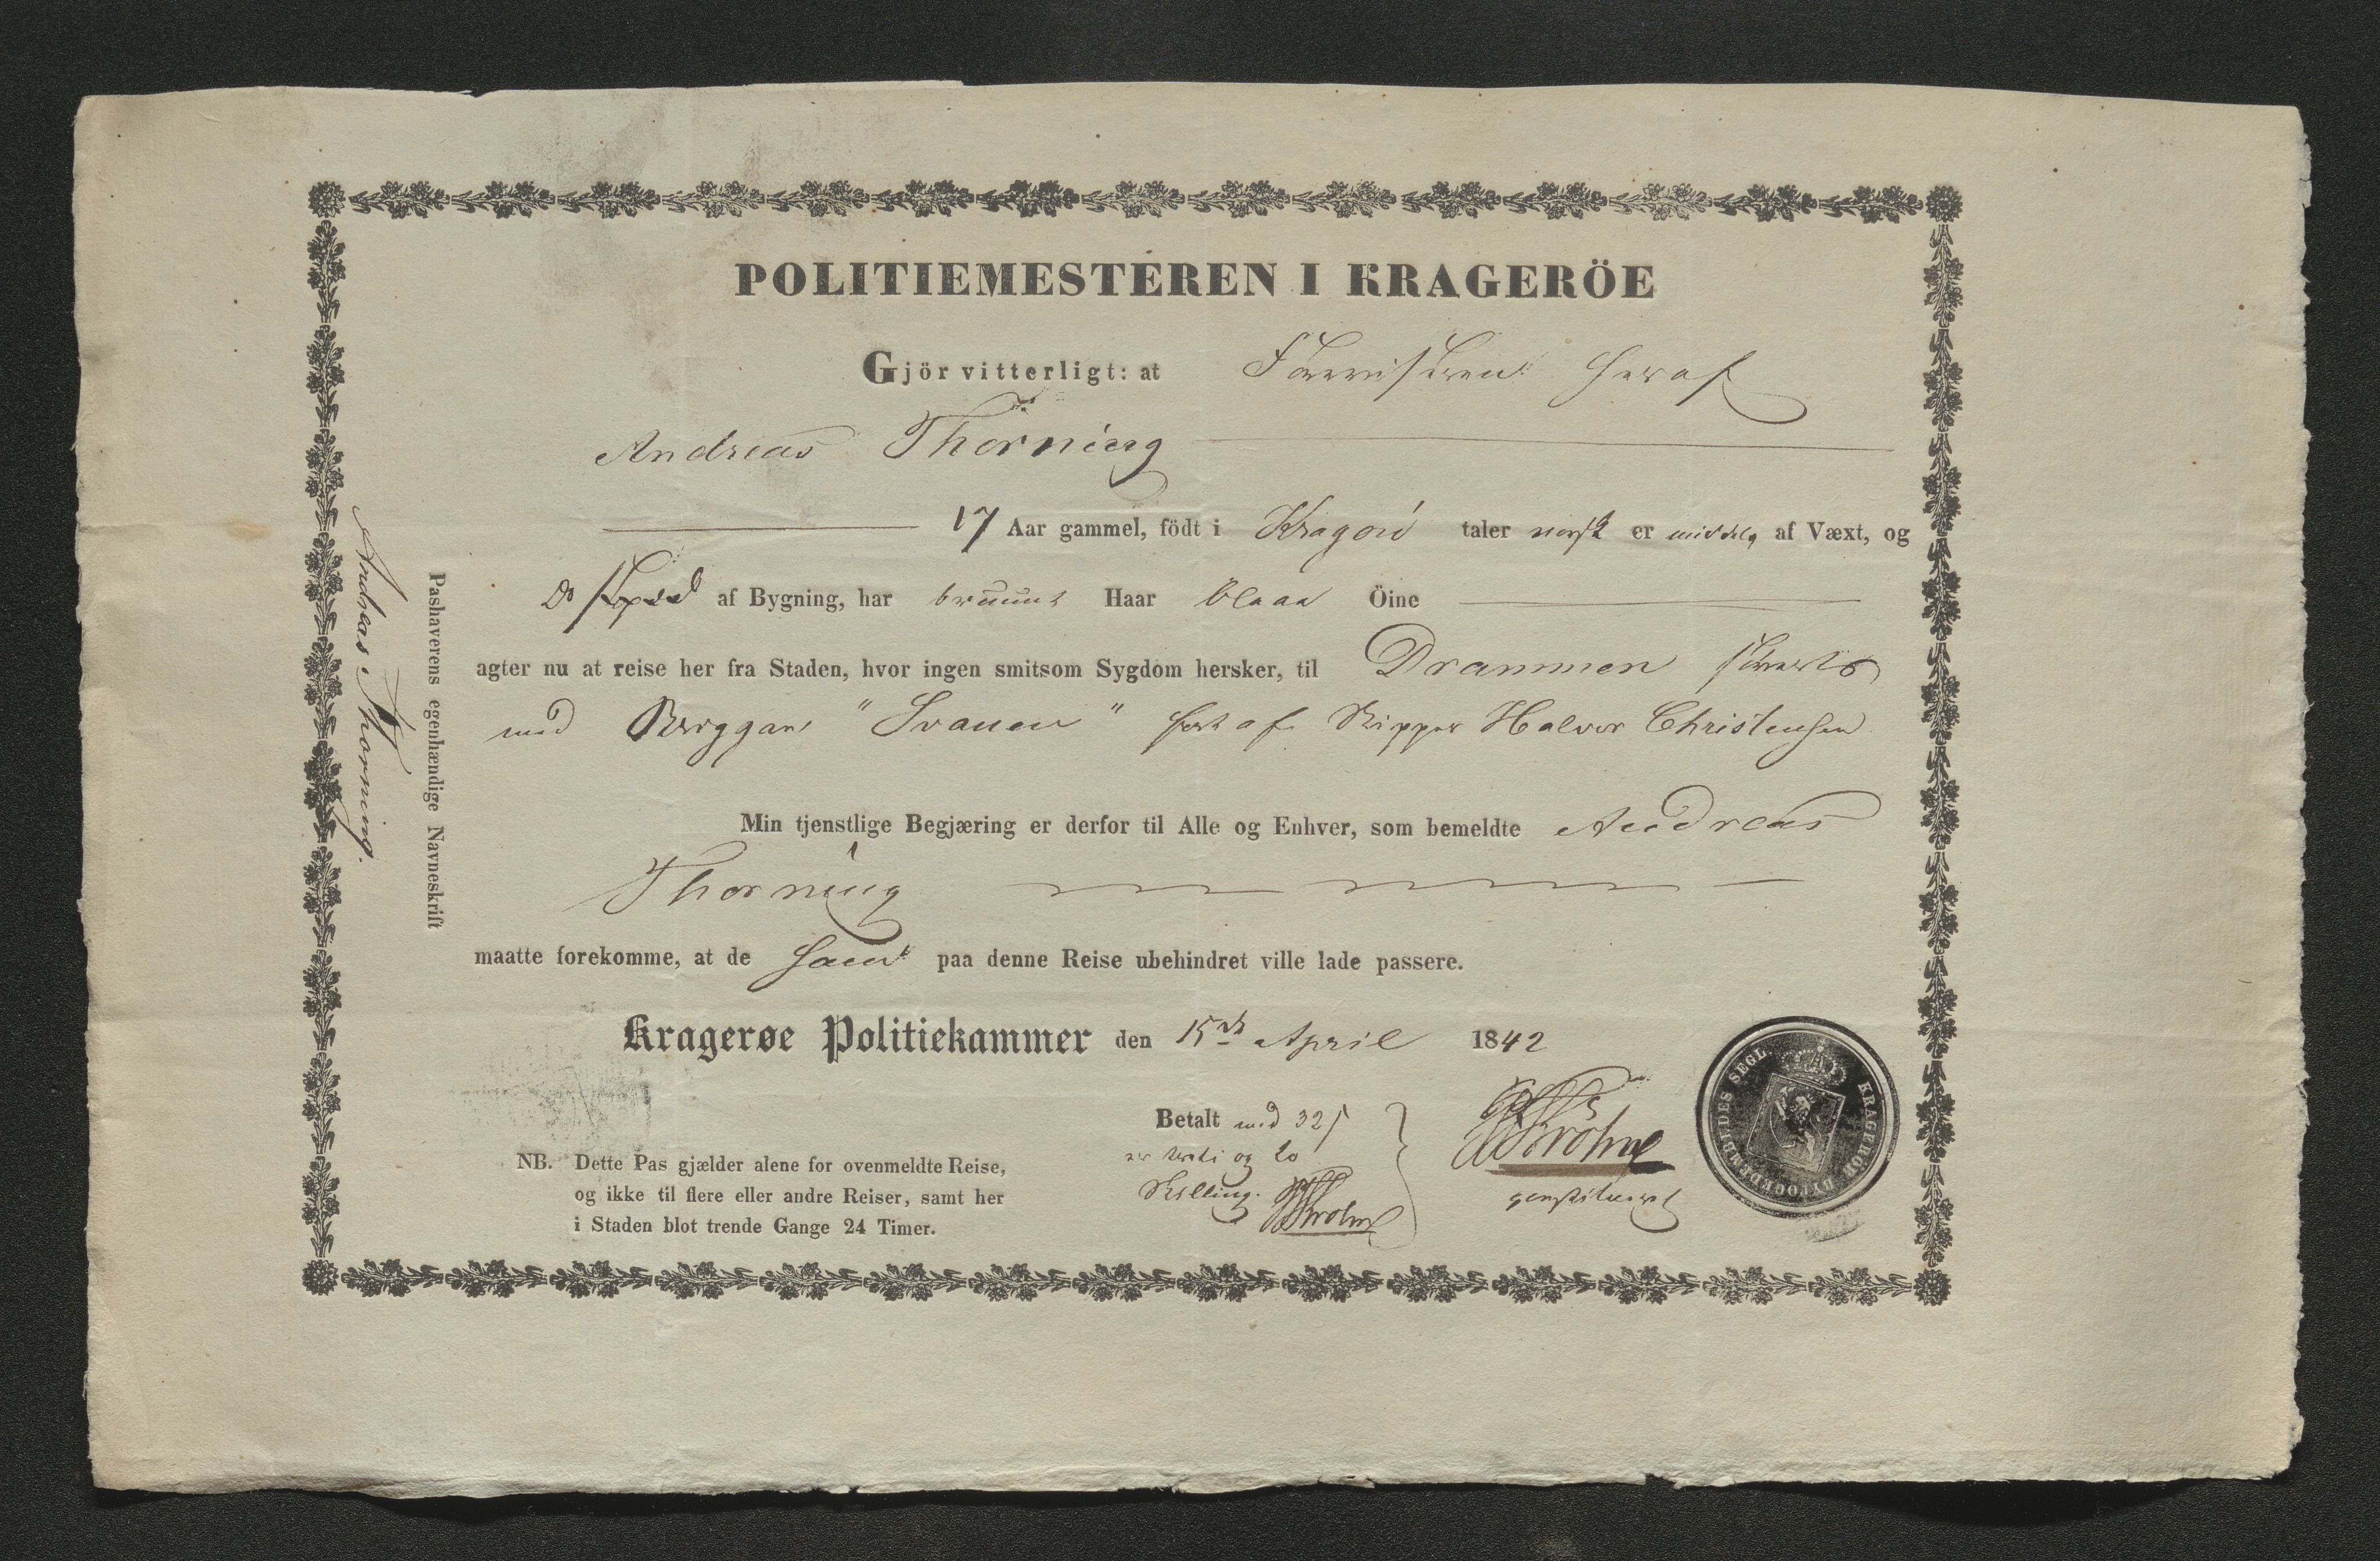 POLITIEMESTEREN I KRAGERÖE
Gjör vitterligt: at
Andreas Thorning
17 Aar gammel, födt i Kragerö taler norsk er middels af Væxt, og
Do af Bygning, har bruunt Haar blaae Öine
agter nu at reise her fra Staden, hvor ingen smitsom Sygdom hersker, til Drammen
med Briggen "Svanen" ført af Skipper Halvor Christensen
Min tjenstlige Begjæring er derfor til Alle og Enhver, som bemeldte Andreas
Thorning
maatte forekomme, at de ham paa denne Reise ubehindret ville lade passere.
Kragerøe Politiekammer den 15de April 1842
Betalt med 32 s
er treti og to
Skilling.
Krohn
Krohn
constitueret
NB. Dette Pas gjælder alene for ovenmeldte Reise,
og ikke til flere eller andre Reiser, samt her
i Staden blot trende Gange 24 Timer.
Pashaverens egenhændige Navneskrift
Andreas Thorning.
KRAGERÖE BYFOGEDEMBEDES SEGL